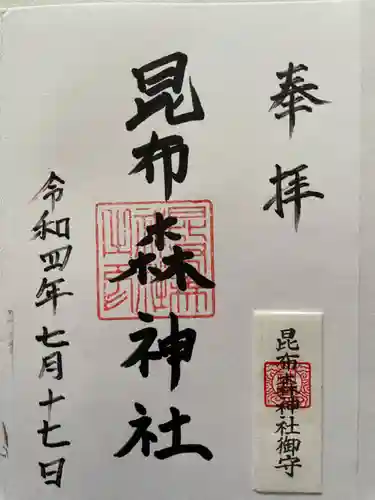 奉拝
昆布森神社
令和四年七月十七日
昆布森神社御守